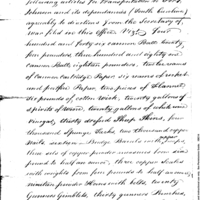 following articles for transportation to Fort
Johnson and its dependencies (North Carolina)
agreeably to a return from the Secretary of
War filed in this office. Viz: Four
hundred and forty six cannon Balls twenty
four pounders, three hundred and eighty six
cannon Balls eighteen pounders, twelve reams
of cannon cartridge Paper six reams of rocket
and port fire Paper, two pieces of Flannel
Six pounds of cotton Wick, twenty gallons of
spirits of wine, twenty gallons of
vinegar, thirty six Sheep Skins, four
thousand Sponge Tacks, two thousand copper
Nails
three sets of copper powder measures from six
pound to half an ounce, three copper Scales
with weights from four pounds to half an ounce
nineteen powder Horns with belts, twenty
Gunners Gimblets, thirty gunners Pinchers,